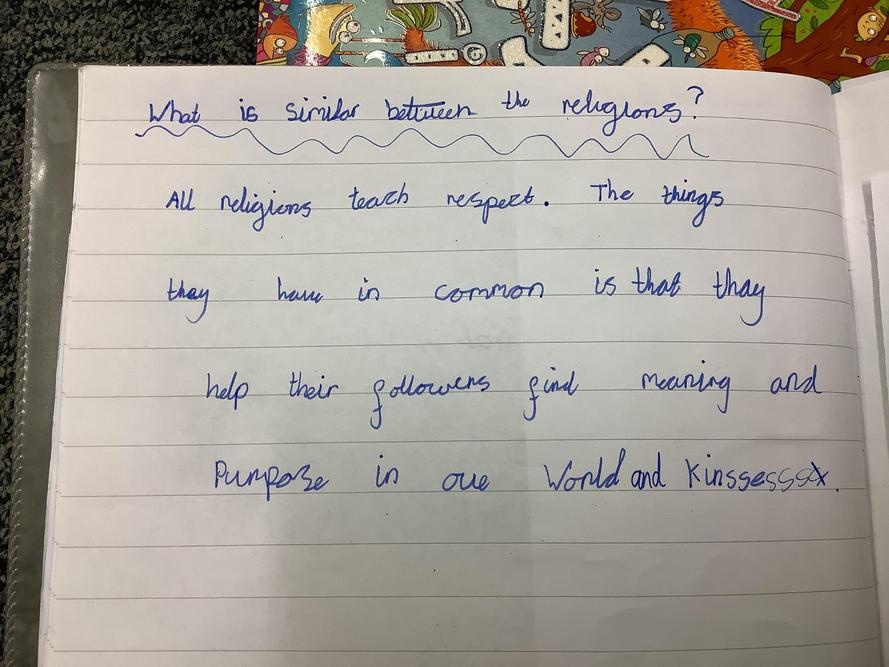 What is similar between the religions?
All religions teach respect. The things
they have in common is that thay
help their followers find meaning and
Purpose in our World and Kinssesssx.